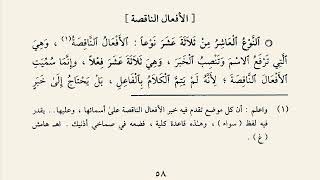 [ الأفعال الناقصة ]
النَّوْعُ الْعَاشِرُ مِنْ ثَلَاثَةَ عَشَرَ نَوْعاً : الْأَفْعَالُ النَّاقِصَةُ(١) ، وَهِيَ
الَّتِي تَرْفَعُ الِاسْمَ وَتَنْصِبُ الْخَبَرَ ، وَهِيَ ثَلَاثَةَ عَشَرَ فِعْلاً ، وَإِنَّمَا سُمِّيَتِ
الْأَفْعَالَ النَّاقِصَةَ ؛ لِأَنَّهُ لَمْ يَتِمَّ الْكَلَامُ بِالْفَاعِلِ ، بَلْ يَحْتَاجُ إِلَى خَبَرٍ
(١) واعلم : أن كل موضع تقدم فيه خبر الأفعال الناقصة على أسمائها ، وعليها.. يقدر
فيه لفظ ( سواء ) ، وهذه قاعدة كلية ، فضعه في صماخي أذنيك . اهـ هامش
( غ ) .
٥٨